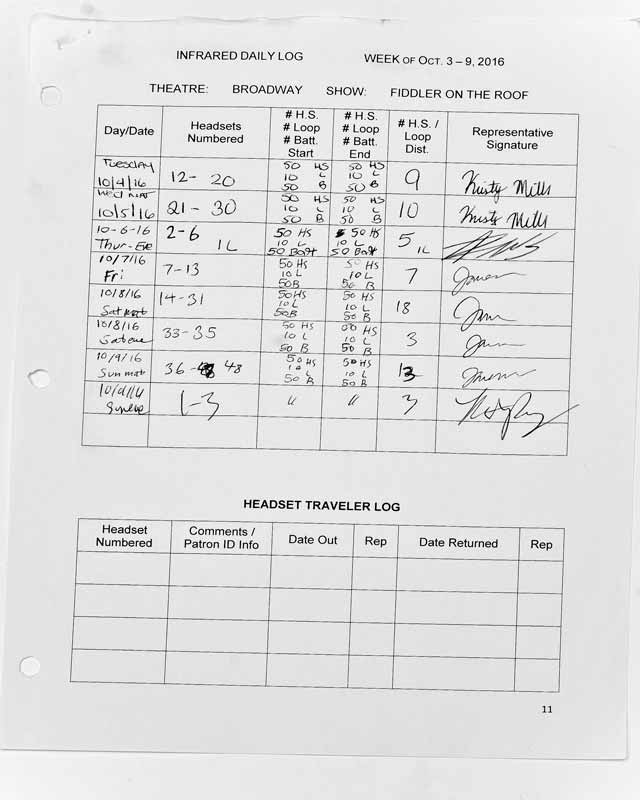 INFRARED DAILY LOG WEEK OF OCT. 3 – 9, 2016
THEATRE: BROADWAY SHOW: FIDDLER ON THE ROOF
Day/Date Headsets Numbered # H.S. # Loop # Batt. Start # H.S. # Loop # Batt. End # H.S. / Loop Dist. Representative Signature
TUESDAY 10/4/16 12- 20 50 HS 10 L 50 B 50 HS 10 L 50 B 9 Kristy Mills
WED MAT 10/5/16 21 - 30 50 HS 10 L 50 B 50 HS 10 L 50 B 10 Kristy Mills
10-6-16 Thur-Eve 2-6 1L 50 HS 10 L 50 Batt 50 HS 10 L 50 Batt 5 1L
10/7/16 Fri 7-13 50 HS 10 L 50B 50 HS 10 L 50 B 7
10/8/16 Sat mat 14-31 50HS 10 L 50B 50 HS 10 L 50 B 18
10/8/16 Sat eve 33-35 50 HS 10 L 50 B 50 HS 10 L 50 B 3
10/9/16 Sun mat 36- 48 50 HS 10 L 50 B 50 HS 10 L 50 B 13
1-3 " " 3
HEADSET TRAVELER LOG
Headset Numbered Comments / Patron ID Info Date Out Rep Date Returned Rep
11